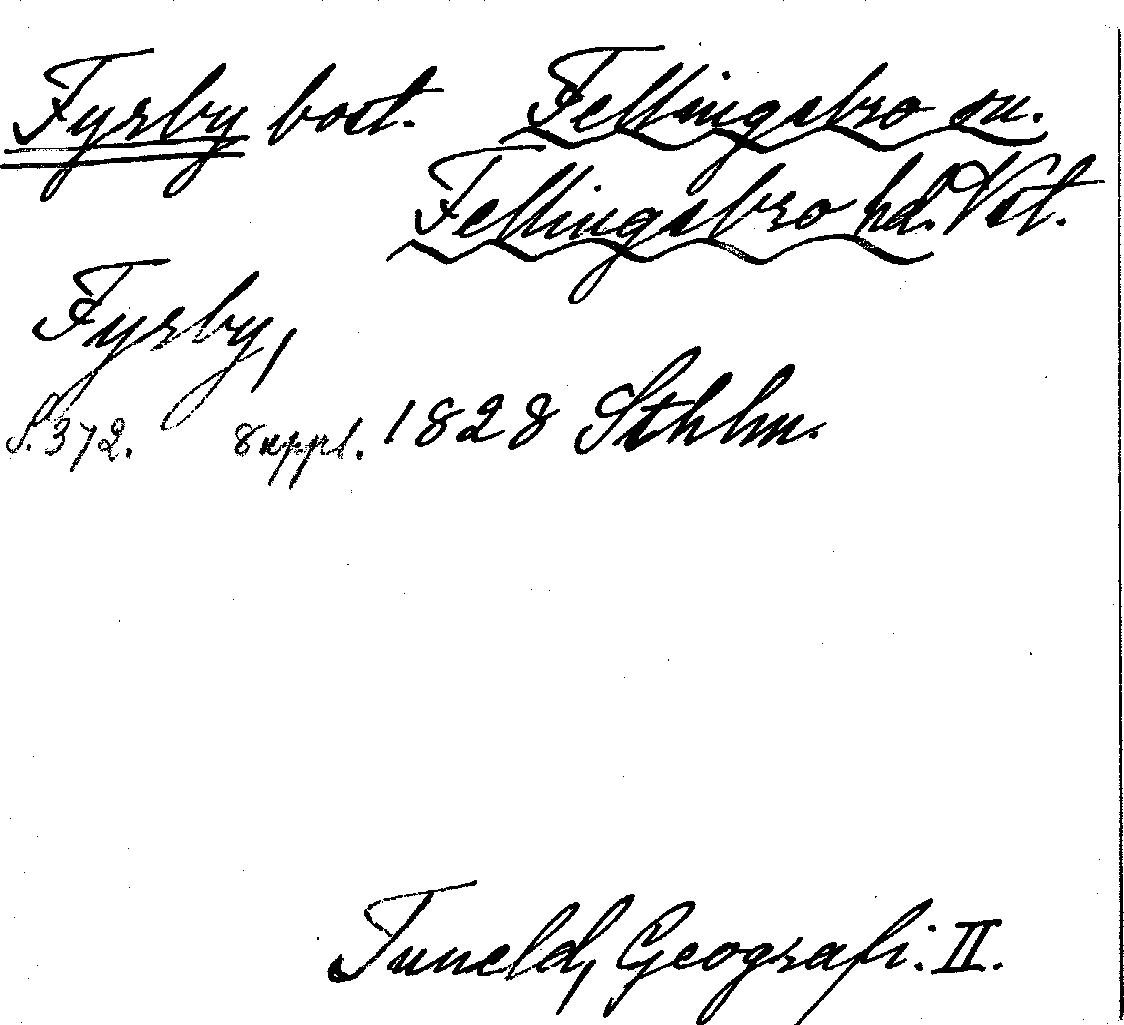 Fyrby bost. Fellingsbro sn.
Fellingsbro hd. Vstl.
Fyrby,
S. 372. Suppl. 1828 Sthlm.
Tuneld, Geografi. II.